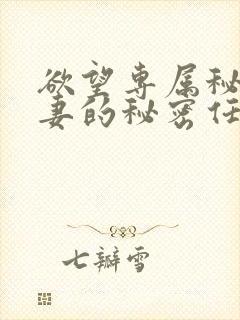 欲望专属秘
妻的秘密任
七瓣雪